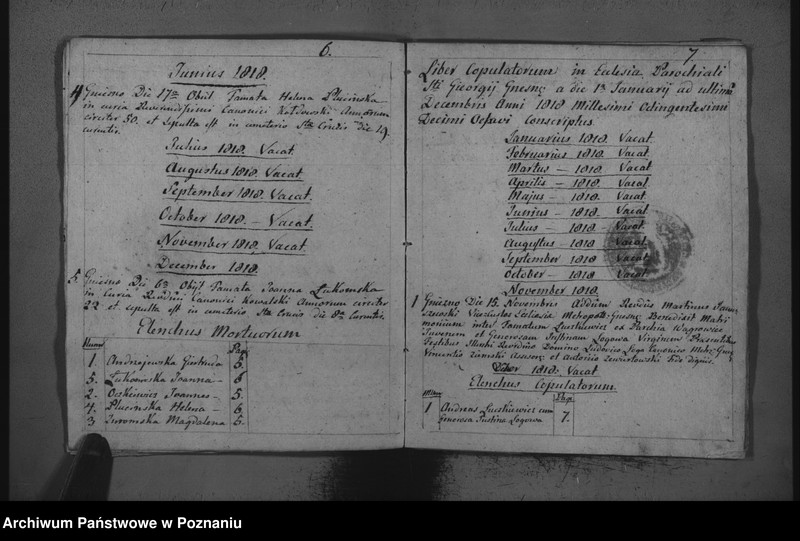 6.
Junius 1818.
4 Gniezno Die 17ma Obijt Famata Helena Plucinska
in curia Canonici Annorum
circiter 50. et sepulta est in cmeterio Stae Crucis die 19.
currentis.
Julius 1818. Vacat
Augustus 1818. Vacat
September 1818. Vacat.
October 1818. – Vacat.
November 1818. Vacat
December 1818.
5. Gniezno Die 6ta Obijt Famata Joanna Lukowska
in Curia Rndmi Canonici Kowalski Annorum circiter
22 et sepulta est in cmeterio Stae Crucis die 8va Currentis.
Elenchus Mortuorum
Num Pag
1. Andrzejewska Gertruda 5.
5. Łukowska Joanna – 6
2. Joannes – 5.
4. Plucinska Helena – 6.
3 Magdalena 6.
7.
Liber Copulatorum in Eclesia Parochiali
Sti Georgij Gnesnae a die 1a Januarij ad ultimam
Decembris Anni 1818 Millesimi Octingentesimi
Decimi Octavi Conscriptus.
Januarius 1818. Vacat.
Februarius 1818. Vacat.
Martus – 1818. Vacat
Aprilis – 1818. Vacat
Majus – 1818. Vacat
Junius – 1818. Vacat
Julius – 1818. Vacat
Augustus – 1818 Vacat
September 1818 Vacat
October – 1818 Vacat
November 1818.
1 Gniezno Die 15. Novembris Martinus
Eclesia Benedixit Matri
monium inter Famatum Luszkiewicz ex Parchia
Juvenem et Generosam Justinam Logowa Virginem
Testibus Domino Ludovico Canonico
Vincentio et Antonio fide dignis.
1818. Vacat
Elenchus Copulatorum.
Num Pag.
1 Andreas Luszkiewicz cum
Generosa Justina Logowa 7.
Archiwum Państwowe w Poznaniu